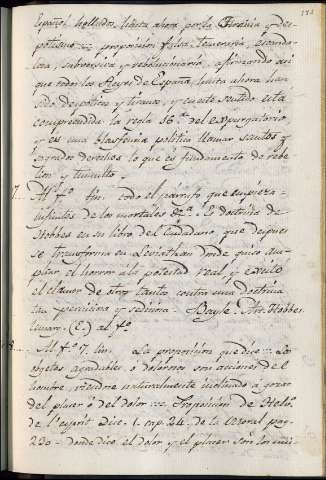 Español hollados, hasta ahora por la Tirania y Des-
potismo ::: proposicion falsa, temeraria, escanda-
losa, subversiva y revolucionaria, afirmando asi
que todos los Reyes de España, hasta ahora han
sido despoticos y tiranos, y en este sentido esta
comprendida la regla 16.ª del expurgatorio,
y es una blasfemia politica llamar santos y
sagrados derechos lo que es fundamento de rebe-
lion y tumulto.
7. Al f.º lin. todo el parrafo que empieza =
de los mortales &.ª Es doctrina de
Hobbes en su libro del Ciudadano, que despues
se transforma en Leviathan donde quiso am-
pliar el horror á la potestad real, y excitó
el clamor de otros tantos contra una doctrina
tan perniciosa y sediciosa. Bayle. Art. Hobbes
(C.) al f.º
8. Al f.º 7. lin. La proposicion que dice ::: Los
objetos agradables, ó dolorosos son acciones del
hombre, viendose naturalmente inclinado á gozar
del placer ó del dolor ::: Proposicion de Helv.
de l'esprit Disc. 1. cap. 24. de la moral pag.
230 - donde dice el dolor y el placer son los uni-